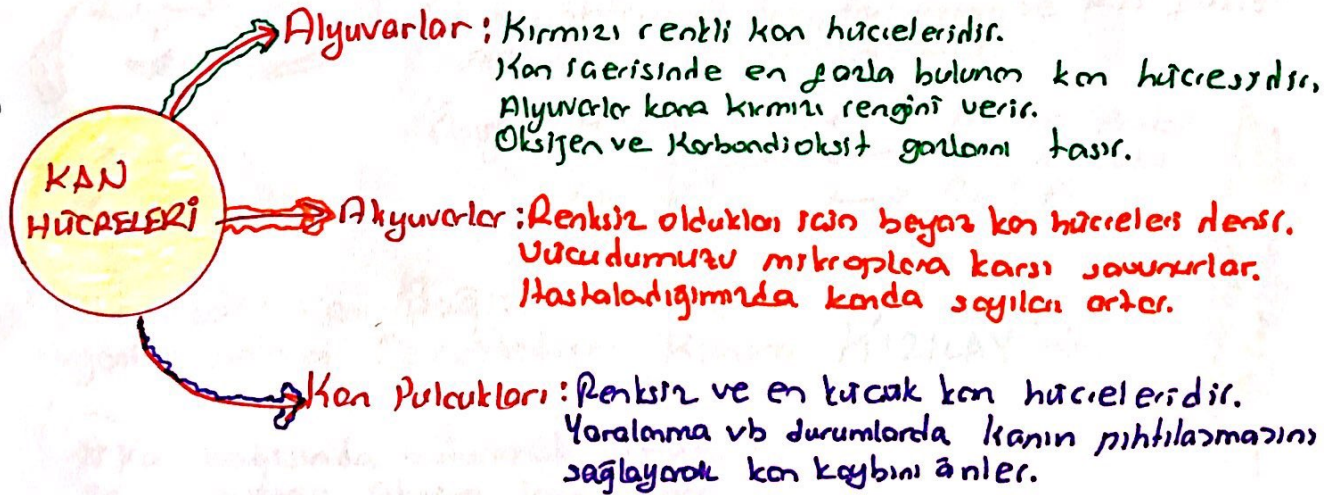 Alyuvarlar : Kırmızı renkli kan hücreleridir.
Kan içerisinde en fazla bulunan kan hücresidir.
Alyuvarlar kana kırmızı rengini verir.
Oksijen ve Karbondioksit gazlarını taşır.
KAN
HÜCRELERİ
Akyuvarlar : Renksiz oldukları için beyaz kan hücreleri denir.
Vücudumuzu mikroplara karşı savunurlar.
Hastaladığımızda kanda sayıları artar.
Kan Pulcukları : Renksiz ve en küçük kan hücreleridir.
Yaralanma vb durumlarda kanın pıhtılaşmasını
sağlayarak kan kaybını önler.